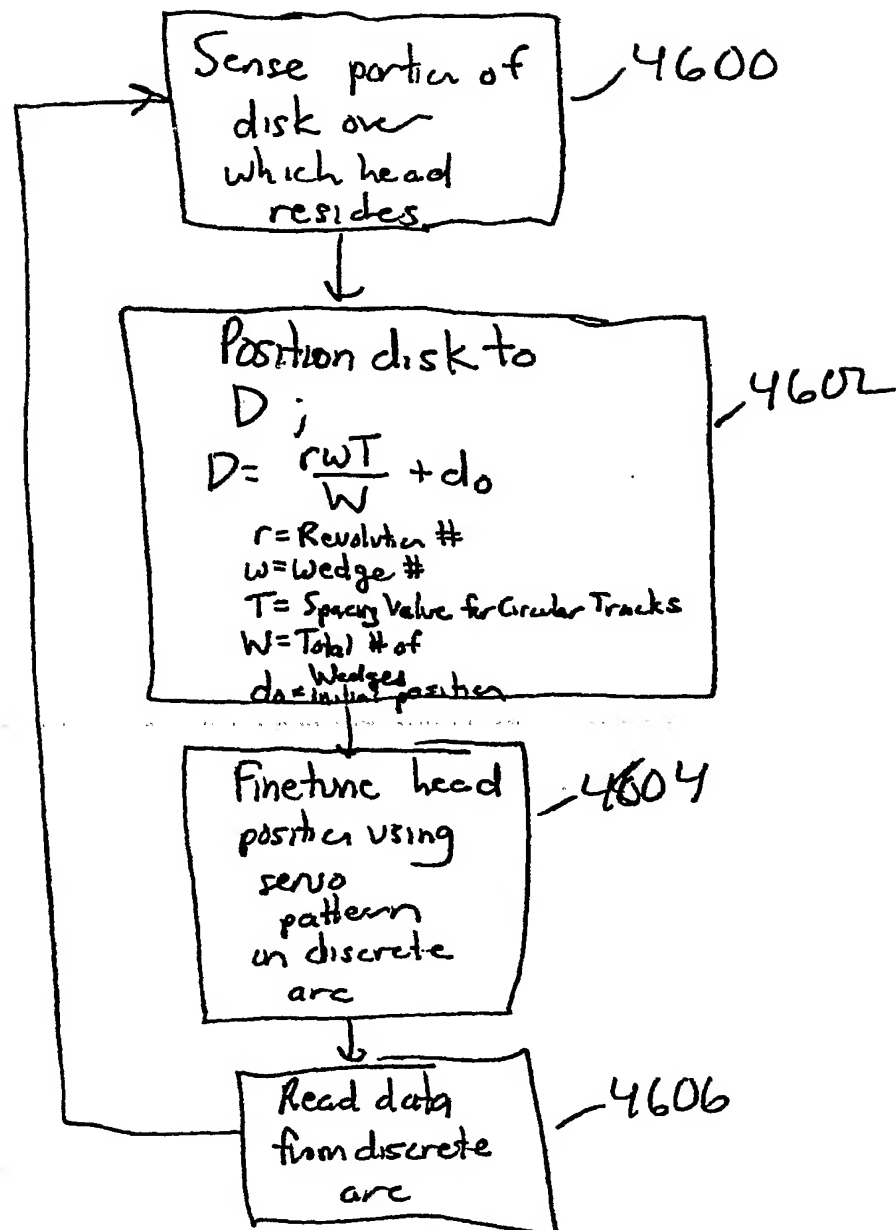 Sense portion of
disk over
which head
resides
4600
Position disk to
D ;
D = rwT/W + d₀
r = Revolution #
w = Wedge #
T = Spacing Value for Circular Tracks
W = Total # of
Wedges
d₀ = initial position
4602
Finetune head
position using
servo
pattern
on discrete
arc
4604
Read data
from discrete
arc
4606